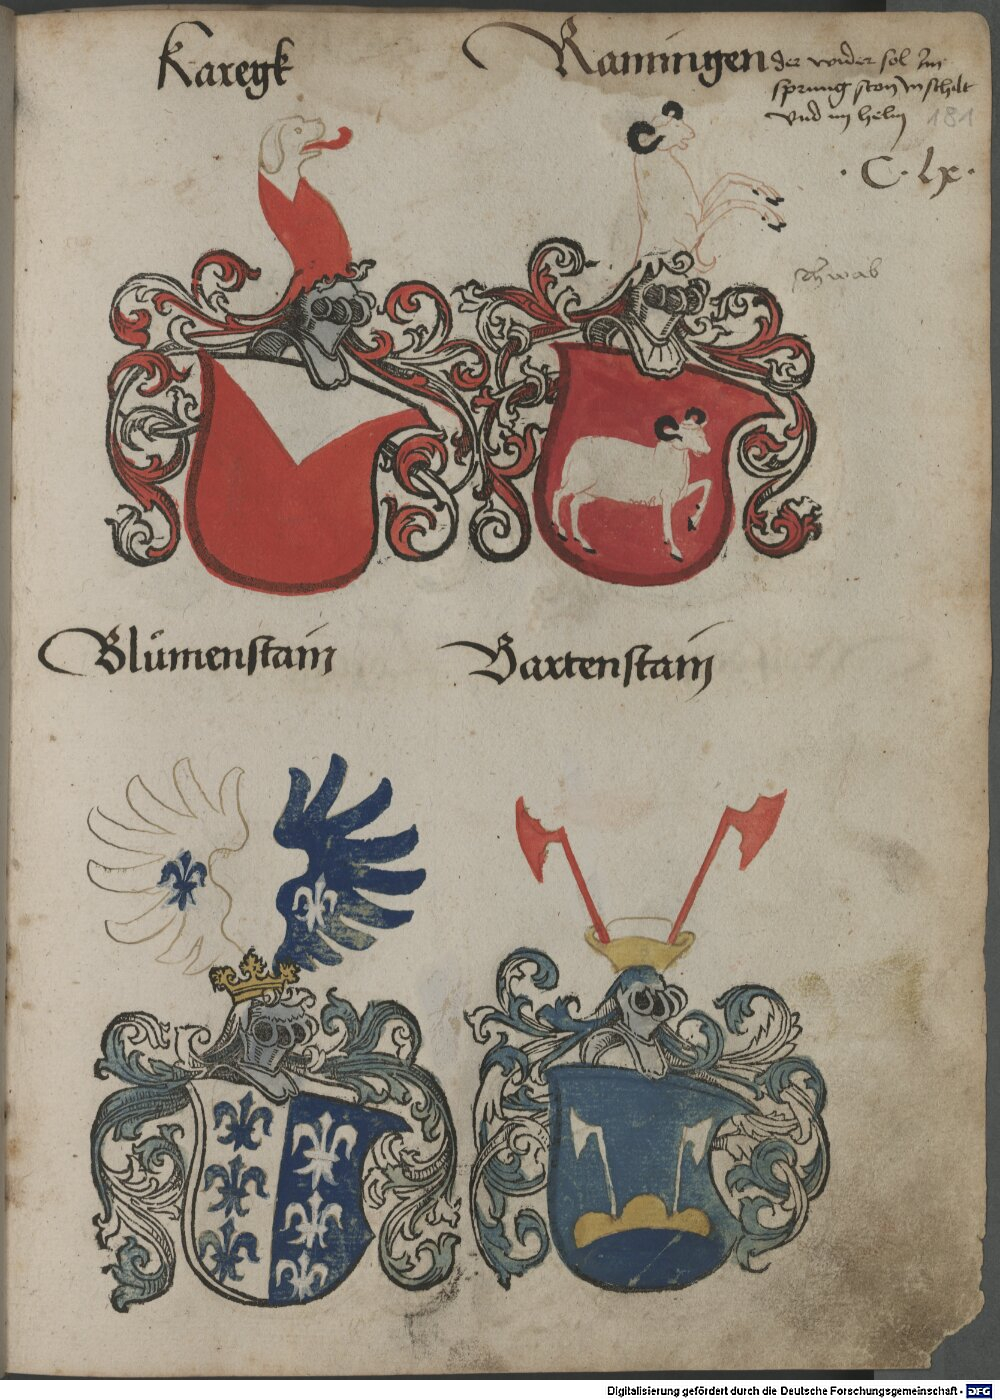 Karegk
Ramingen der wider sol Im
sprung ston Im schilt
vnd im helm 181
· C · lx ·
schwab
Blůmenstain
Bartenstain
Digitalisierung gefördert durch die Deutsche Forschungsgemeinschaft - DFG